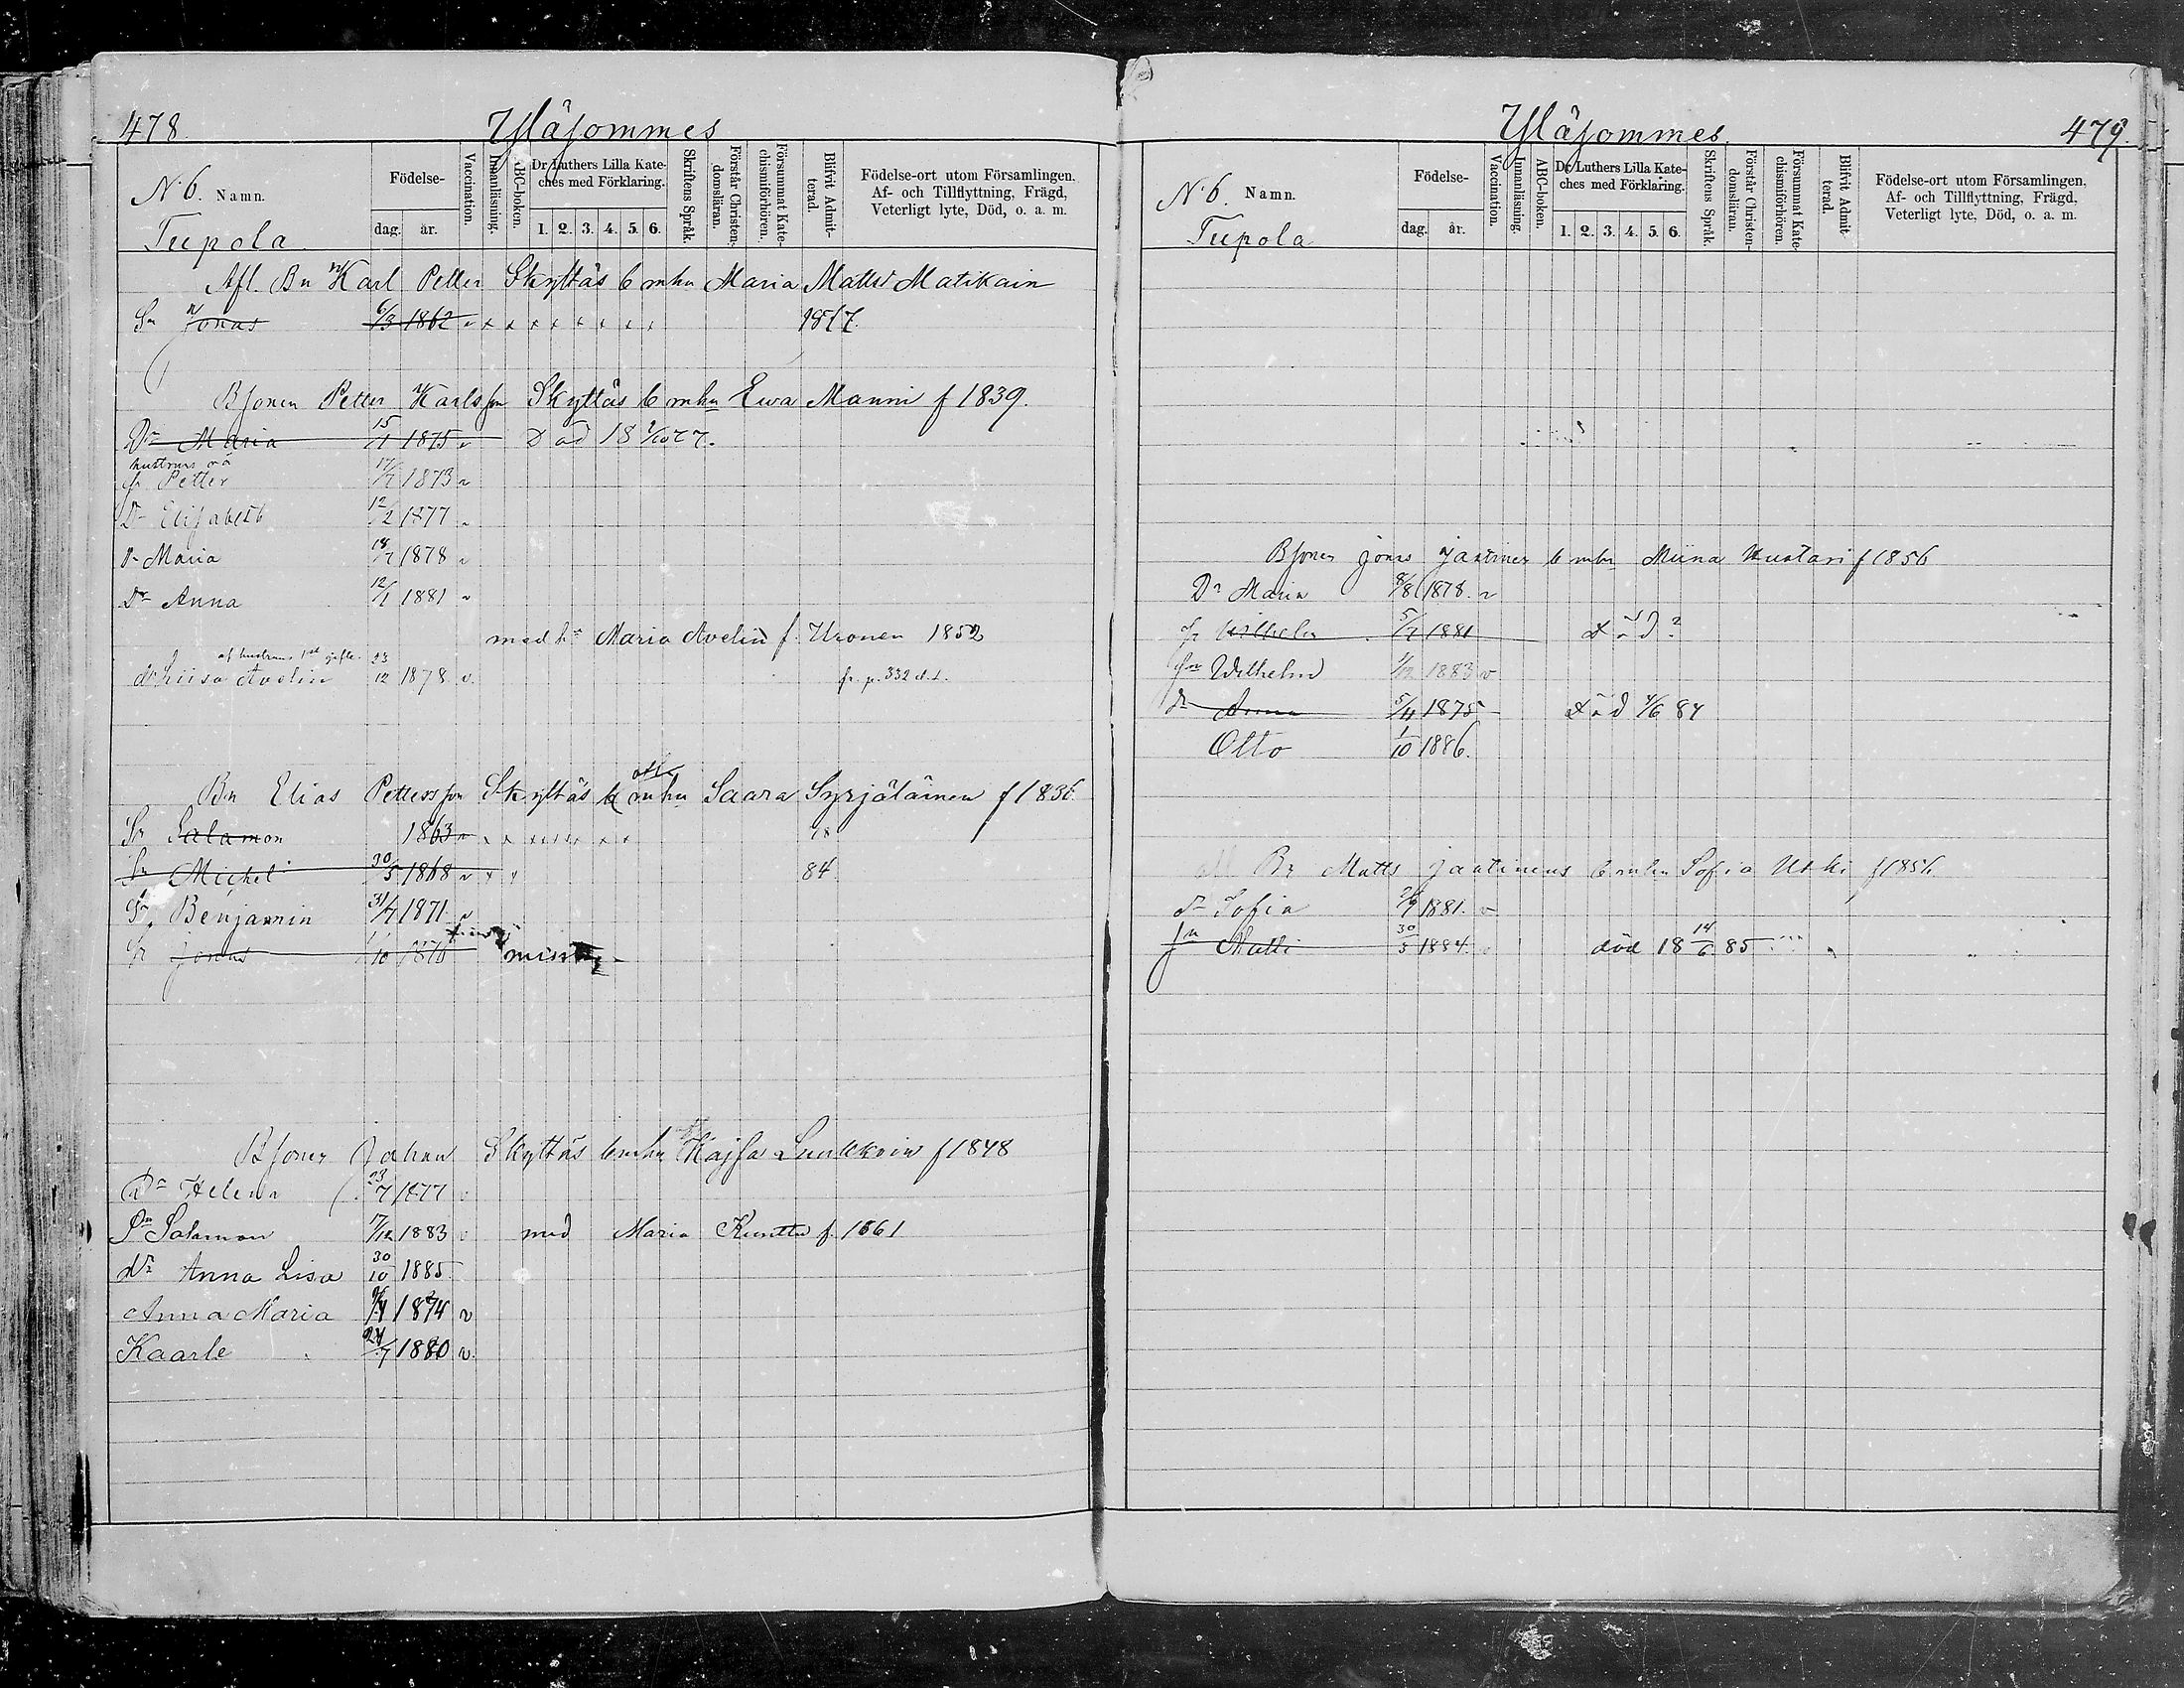 478.
Yläsommes
N:6. Namn.
Födelse-
dag. år.
Vaccination.
Innanläsning.
ABC-boken.
Dr Luthers Lilla Kate-
ches med Förklaring.
1. 2. 3. 4. 5. 6.
Skriftens Språk.
Förstår Christen-
domsläran.
Försummat Kate-
chismiförhören.
Blifvit Admit-
terad.
Födelse-ort utom Församlingen.
Af- och Tillflyttning, Frägd,
Veterligt lyte, Död, o. a. m.
Tupola
Afl. Bn Karl Petter Skyttäs b mhu Maria Mattsd Matikain
Sn Jonas 6/3 1862 v x x x x x x x x
Bsonen Petter Karlsson Skyttäs b mhu Ewa Manni f 1839.
Dr Maria 15/1 1875 v Död
hustruns oä
sn Petter 17/7 1873 v
Dr Elisabeth 12/2 1877 v
Dr Maria 18/7 1878 v
Dr Anna 12/1 1881 v
med h Maria Avelin f. Uronen 1852
af hustruns 1sta gifte
dr Liisa Avelin 23/12 1878 v. fr. p. 332 d. 1.
Bn Elias Pettersson Skyttäs b mhu Saara Syrjäläinen f 1836
Sn Salamon 1863 v x x x x x x x x
Sn Michel 30/5 1868 v x x 84
Sn Benjamin 31/7 1871 v
Sn Jonas
Bsonen Johan Skyttäs b mhu Kajsa Luukkoin f 1848
Dr Helena 23/7 1877 v
Sn Salamon 17/12 1883 v med Maria Kunttu f. 1861
dr Anna Lisa 30/10 1885
Anna Maria 1874 v
Kaarle 24/7 1880 v.
Yläsommes.
479.
N:6. Namn.
Födelse-
dag. år.
Vaccination.
Innanläsning.
ABC-boken.
Dr Luthers Lilla Kate-
ches med Förklaring.
1. 2. 3. 4. 5. 6.
Skriftens Språk.
Förstår Christen-
domsläran.
Försummat Kate-
chismiförhören.
Blifvit Admit-
terad.
Födelse-ort utom Församlingen.
Af- och Tillflyttning, Frägd,
Veterligt lyte, Död, o. a. m.
Tupola
Bsonen Jonas Jaatinen b mhu Miina Mustari f 1856
Dr Maria 8/8 1878. v
sn Wilhelm 5/7 1881 Död?
sn Wilhelm 1883 v
dr Anna 5/11 1875 Död 4/6 84
Otto 1/10 1886.
Bn Matts Jaatinens b mhu Sofia Uski f 1856
dr Sofia 1881. v
sn Matti 30/5 1884. v död 18 14/6 85